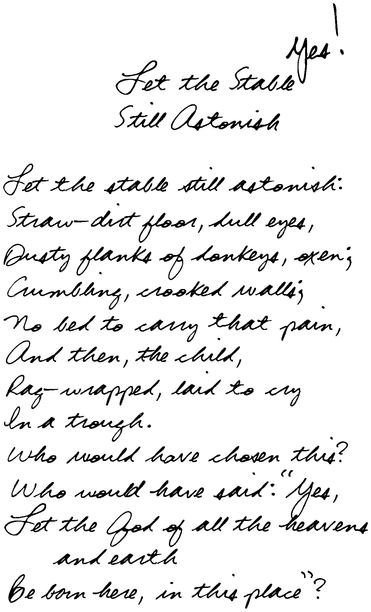 Yes!
Let the Stable
Still Astonish
Let the stable still astonish:
Straw-dirt floor, dull eyes,
Dusty flanks of donkeys, oxen;
Crumbling, crooked walls;
No bed to carry that pain,
And then, the child,
Rag-wrapped, laid to cry
In a trough.
Who would have chosen this?
Who would have said: "Yes,
Let the God of all the heavens
and earth
Be born here, in this place"?